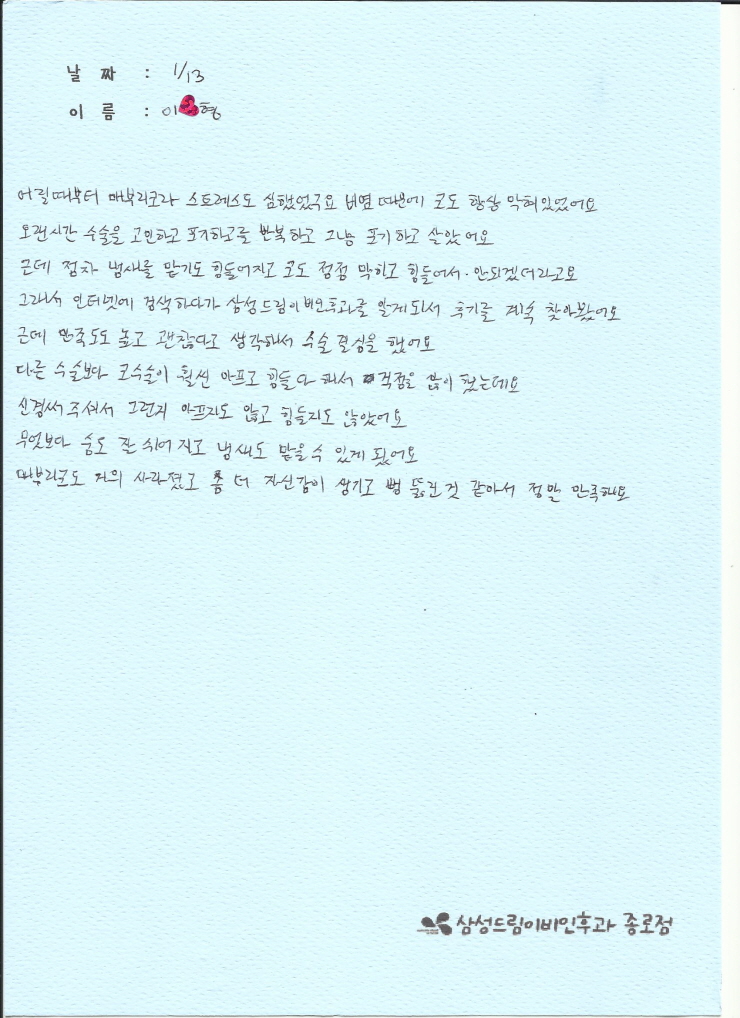 날 짜 : 1/13
이 름 : 이 형
어릴때부터 매부리코라 스트레스도 심했었구요 비염 때문에 코도 항상 막혀있었어요
오랜시간 수술을 고민하고 포기하고를 반복하고 그냥 포기하고 살았어요
근데 점차 냄새를 맡기도 힘들어지고 코도 점점 막히고 힘들어서 안되겠더라고요
그래서 인터넷에 검색하다가 삼성드림이비인후과를 알게되서 후기를 계속 찾아봤어요
근데 만족도도 높고 괜찮다고 생각해서 수술 결심을 했어요
다른 수술보다 코수술이 훨씬 아프고 힘들다 해서 걱정을 많이 했는데요
신경써주셔서 그런지 아프지도 않고 힘들지도 않았어요
무엇보다 숨도 잘 쉬어지고 냄새도 맡을수 있게 됬어요
매부리코도 거의 사라졌고 좀 더 자신감이 생기고 뻥 뚫린것 같아서 정말 만족해요
삼성드림이비인후과 종로점